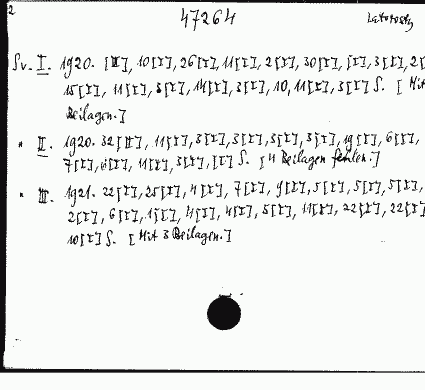 2 47264 Latorosty
Sv. I. 1920. [II], 10[I], 26[I], 11[I], 2[I], 30[I], [I], 3[I], 2[
15[I], 11[I], 3[I], 14[I], 3[I], 10, 11[I], 3[I] S. [Mit
Beilagen.]
" II. 1920. 32[II], 11[I], 3[I], 3[I], 3[I], 3[I], 19[I], 6[I],
7[I], 6[I], 11[I], 3[I], [I] S. [4 Beilagen fehlen.]
" III. 1921. 22[I], 25[I], 4[I], 7[I], 9[I], 5[I], 5[I], 5[I],
2[I], 6[I], 15[I], 4[I], 4[I], 5[I], 11[I], 22[I], 22[I]
10[I] S. [Mit 3 Beilagen.]